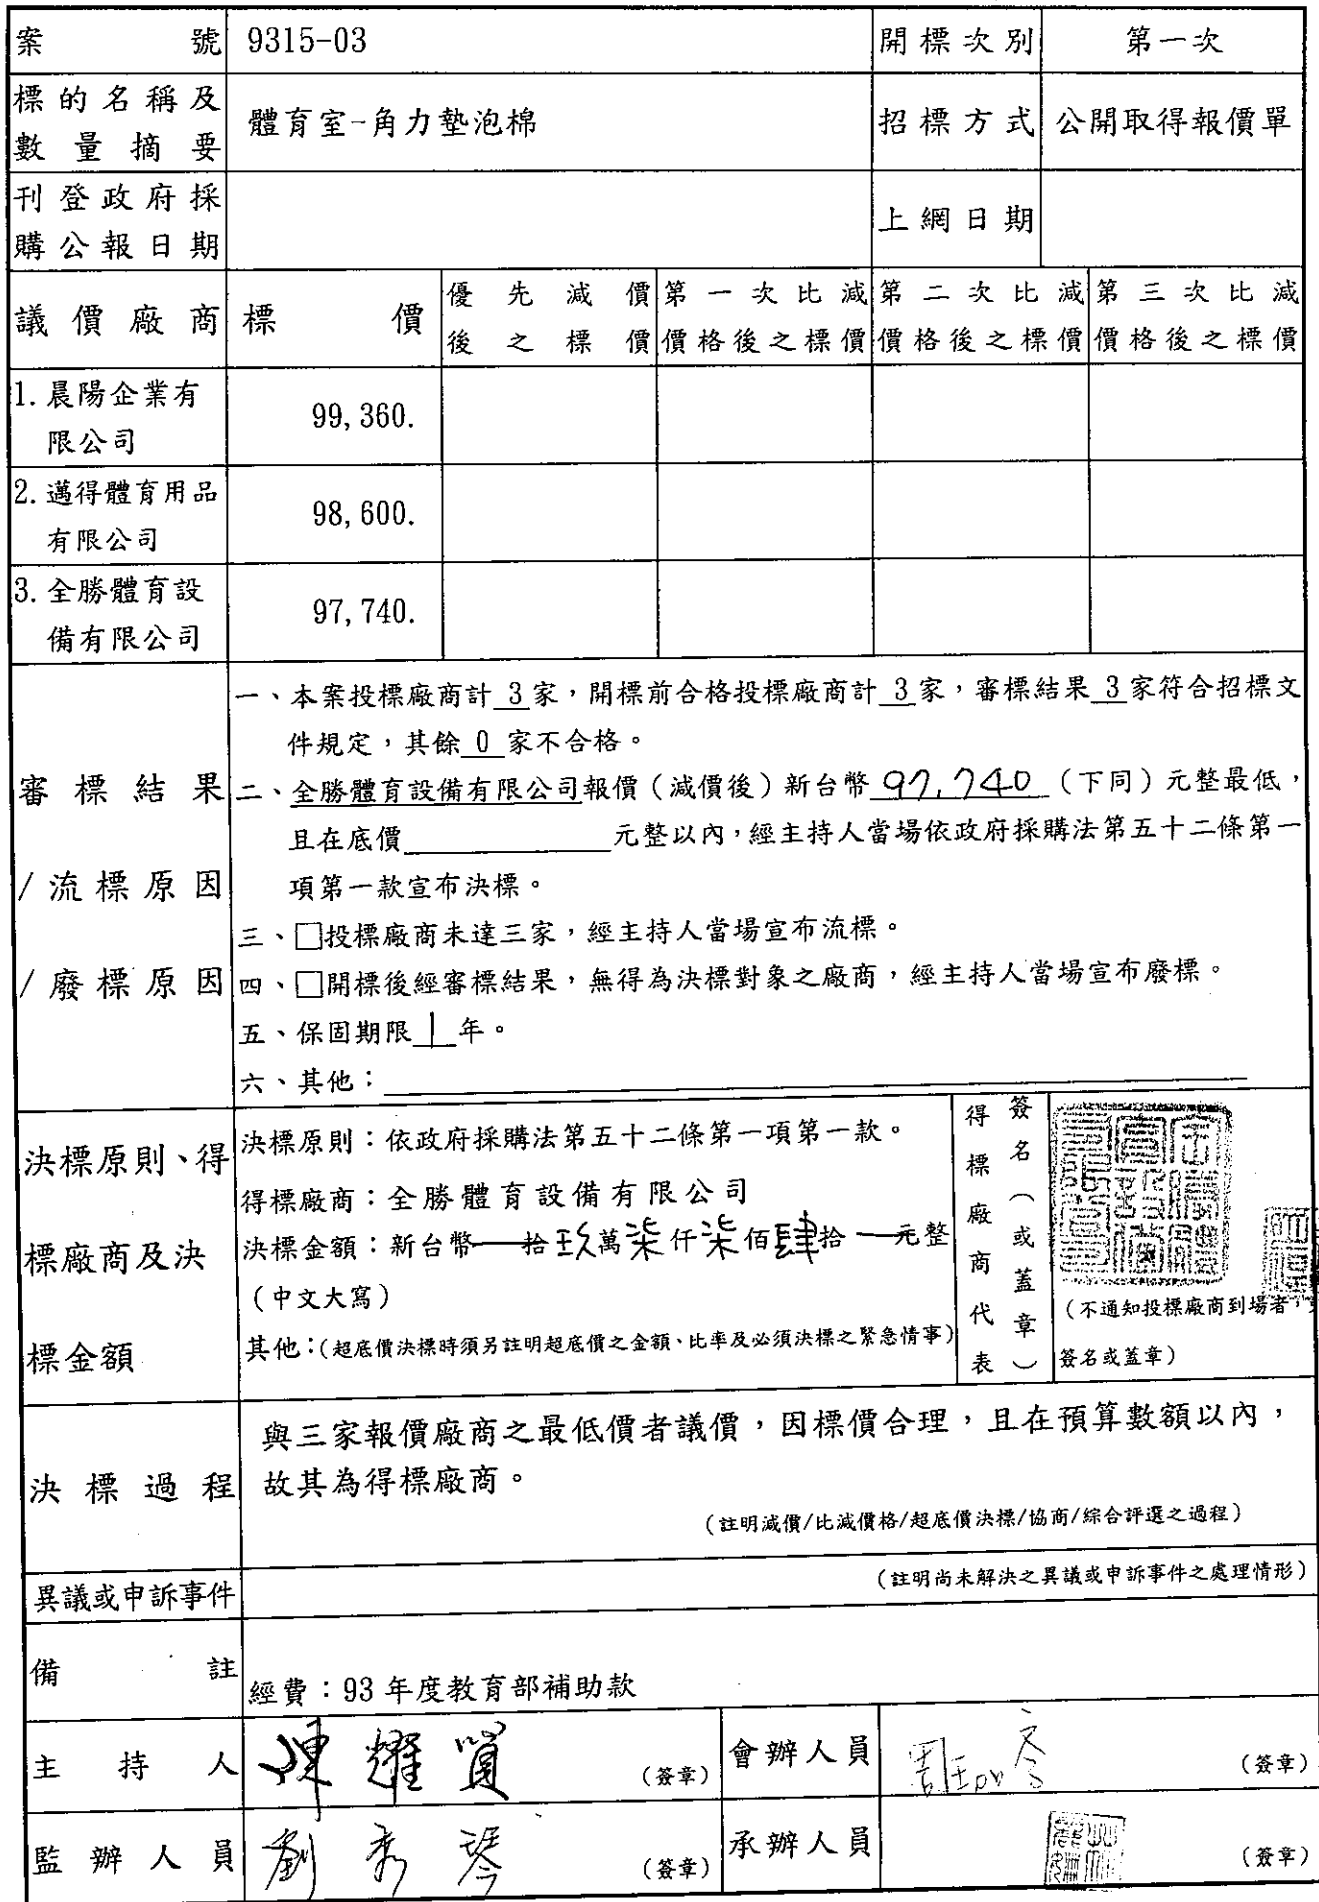 案號 9315-03 開標次別 第一次
標的名稱及 體育室-角力墊泡棉 招標方式 公開取得報價單
數量摘要
刊登政府採 上網日期
購公報日期
議價廠商 標價 優先減價 第一次比減 第二次比減 第三次比減
後之標價 價格後之標價 價格後之標價 價格後之標價
1. 晨陽企業有 99,360.
限公司
2. 邁得體育用品 98,600.
有限公司
3. 全勝體育設 97,740.
備有限公司
審標結果
/流標原因
/廢標原因
一、本案投標廠商計 3 家，開標前合格投標廠商計 3 家，審標結果 3 家符合招標文
件規定，其餘 0 家不合格。
二、全勝體育設備有限公司報價（減價後）新台幣 97,740（下同）元整最低，
且在底價 元整以內，經主持人當場依政府採購法第五十二條第一
項第一款宣布決標。
三、□投標廠商未達三家，經主持人當場宣布流標。
四、□開標後經審標結果，無得為決標對象之廠商，經主持人當場宣布廢標。
五、保固期限 1 年。
六、其他：
決標原則、得
標廠商及決
標金額
決標原則：依政府採購法第五十二條第一項第一款。
得標廠商：全勝體育設備有限公司
決標金額：新台幣 — 拾玖萬柒仟柒佰肆拾 — 元整
（中文大寫）
其他：（超底價決標時須另註明超底價之金額、比率及必須決標之緊急情事）
得標廠商代表
簽名（或蓋章）
（不通知投標廠商到場者，
簽名或蓋章）
決標過程
與三家報價廠商之最低價者議價，因標價合理，且在預算數額以內，
故其為得標廠商。
（註明減價/比減價格/超底價決標/協商/綜合評選之過程）
異議或申訴事件 （註明尚未解決之異議或申訴事件之處理情形）
備註 經費：93 年度教育部補助款
主持人 陳耀 （簽章） 會辦人員 （簽章）
監辦人員 劉秀琴 （簽章） 承辦人員 （簽章）